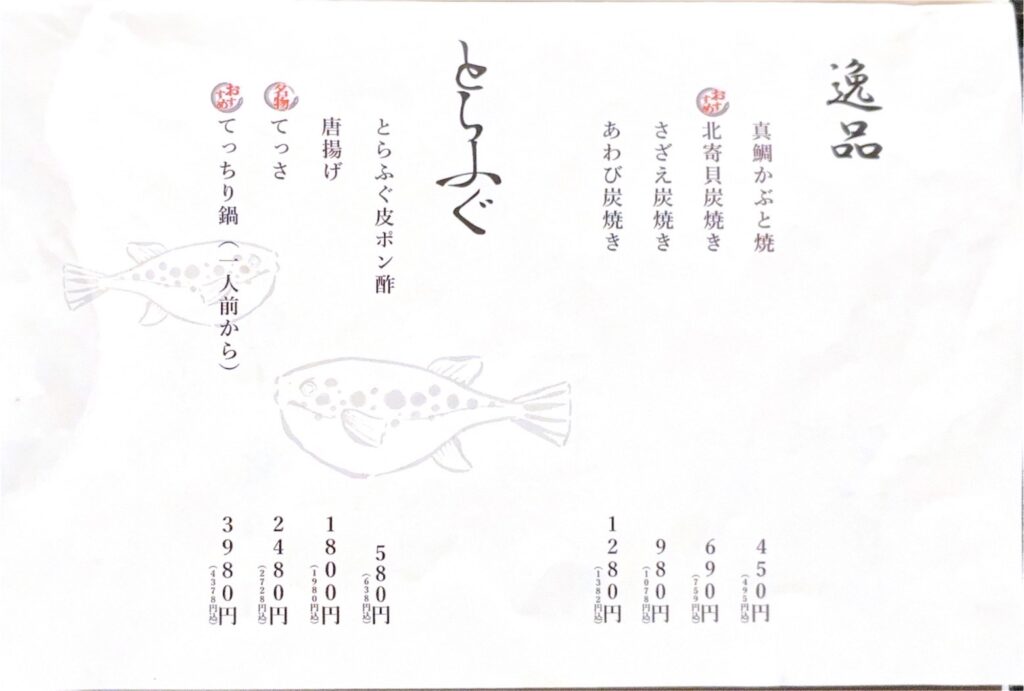 逸品
真鯛かぶと焼
450円
(495円込)
おすすめ
北寄貝炭焼き
690円
(759円込)
さざえ炭焼き
980円
(1078円込)
あわび炭焼き
1280円
(1382円込)
とらふぐ
とらふぐ皮ポン酢
580円
(638円込)
唐揚げ
1800円
(1980円込)
名物
てっさ
2480円
(2728円込)
おすすめ
てっちり鍋(一人前から)
3980円
(4378円込)